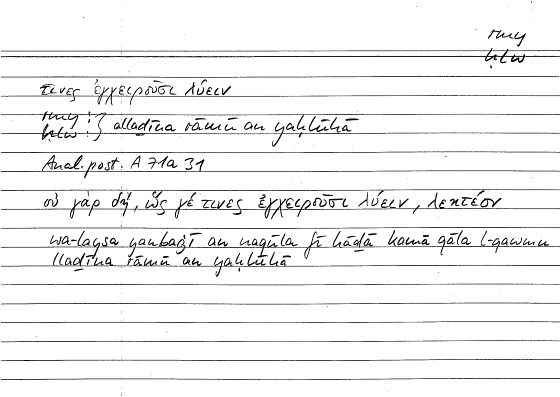 rmy
ḥlw
τινες ἐγχειροῦσι λύειν
rmy :
ḥlw : } allaḏīna rāmū an yaḥlūhā
Anal. post. A 71a 31
οὐ γὰρ δή, ὥς γέ τινες ἐγχειροῦσι λύειν, λεκτέον
wa-laysa yanbaġī an naqūla fī hāḏā kamā qāla l-qawmu
llaḏīna rāmū an yaḥlūhā